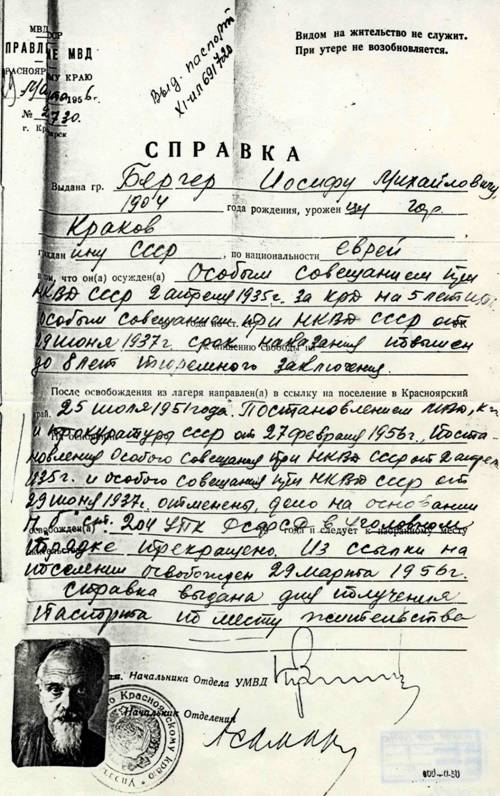 МВД СССР
УПРАВЛЕНИЕ МВД
ПО КРАСНОЯРСКОМУ КРАЮ
Марта 1956 г.
№ 2730
г. Красноярск
Выд. паспорт
XI-ИЛ 691720
Видом на жительство не служит.
При утере не возобновляется.
СПРАВКА
Выдана гр. Бергер Иосифу Михайловичу
1904 года рождения, уроженцу гор.
Краков
гражданину СССР, по национальности еврей
в том, что он(а) осужден(а) Особым совещанием при
НКВД СССР 2 апреля 1935 г. за КРД на 5 лет и
особым совещанием при НКВД СССР от
29 июня 1937 г. срок наказания повышен
до 8 лет тюремного заключения.
После освобождения из лагеря направлен(а) в ссылку на поселение в Красноярский
край. 25 июля 1951 года. Постановлением МВД, КГБ
и прокуратуры СССР от 27 февраля 1956 г., Поста-
новления Особого Совещания при НКВД СССР от 2 апреля
1935 г. и особого совещания при НКВД СССР от
29 июня 1937 г. отменены, дело на основании
ст. 204 УПК РСФСР в уголовном
порядке прекращено. Из ссылки на
поселении освобожден 29 марта 1956 г.
Справка выдана для получения
паспорта по месту жительства
Начальника Отдела УМВД
Начальник Отделения
по Красноярскому краю